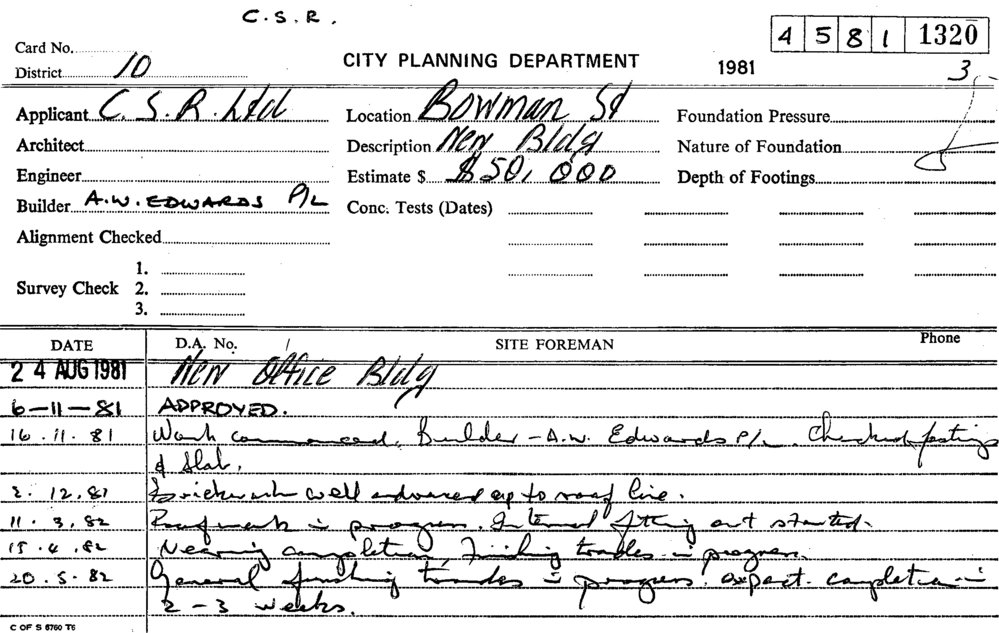 C.S.R.
4 5 8 1 1320
Card No.
CITY PLANNING DEPARTMENT 1981 3
District 10
Applicant C.S.R. Ltd Location Bowman St Foundation Pressure
Architect Description New Bldg Nature of Foundation
Engineer Estimate $ $50,000 Depth of Footings
Builder A.W. EDWARDS P/L Conc. Tests (Dates)
Alignment Checked
1.
Survey Check 2.
3.
DATE D.A. No. SITE FOREMAN Phone
24 AUG 1981 New Office Bldg
6-11-81 APPROVED.
16.11.81 Work commenced, Builder - A.W. Edwards P/L. Checked footings
& slab.
2.12.81 Brickwork well advanced up to roof line.
11.3.82 Roofwork in progress. Internal fitting out started.
15.4.82 Nearing completion, Finishing trades in progress.
20.5.82 General finishing trades in progress. expect completion in
2-3 weeks.
C OF S 6760 T6